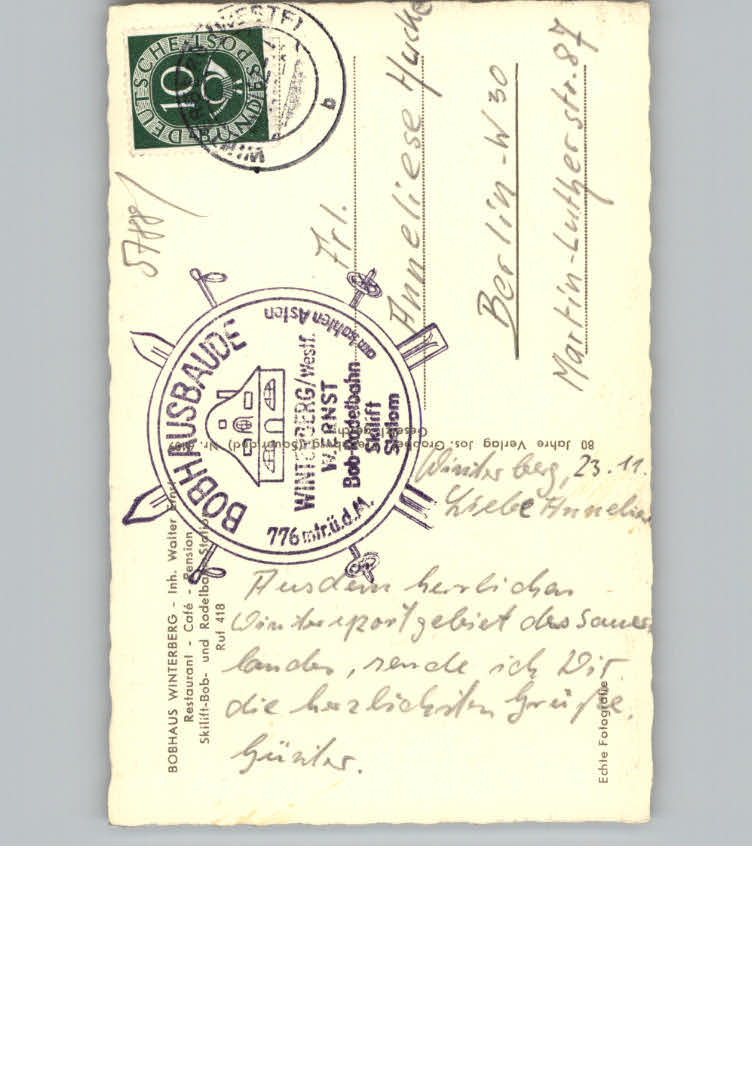 BOBHAUS WINTERBERG - Inh. Walter Ernst
Restaurant - Café - Pension
Skilift-Bob- und Rodelbahn Station
Ruf 418
Winterberg, 23.11.
Liebe Annelie
Aus dem herrlichen
Wintersportgebiet des Sauer
landes, sende ich Dir
die herzlichsten Grüße.
Günter.
Echte Fotografie
80 Jahre Verlag Jos. Grobbel, Fredeburg (Sauerland) Nr.
Gesetzlich
DEUTSCHE BUNDESPOST
10
(WESTF)
b
5788
BOBHAUSBAUDE
WINTERBERG/Westf.
W. ERNST
Bob-Rodelbahn
Skilift
Slalom
776 mtr.ü.d.M.
am kahlen Asten
Frl.
Anneliese
Berlin-W 30
Martin-Lutherstr. 87